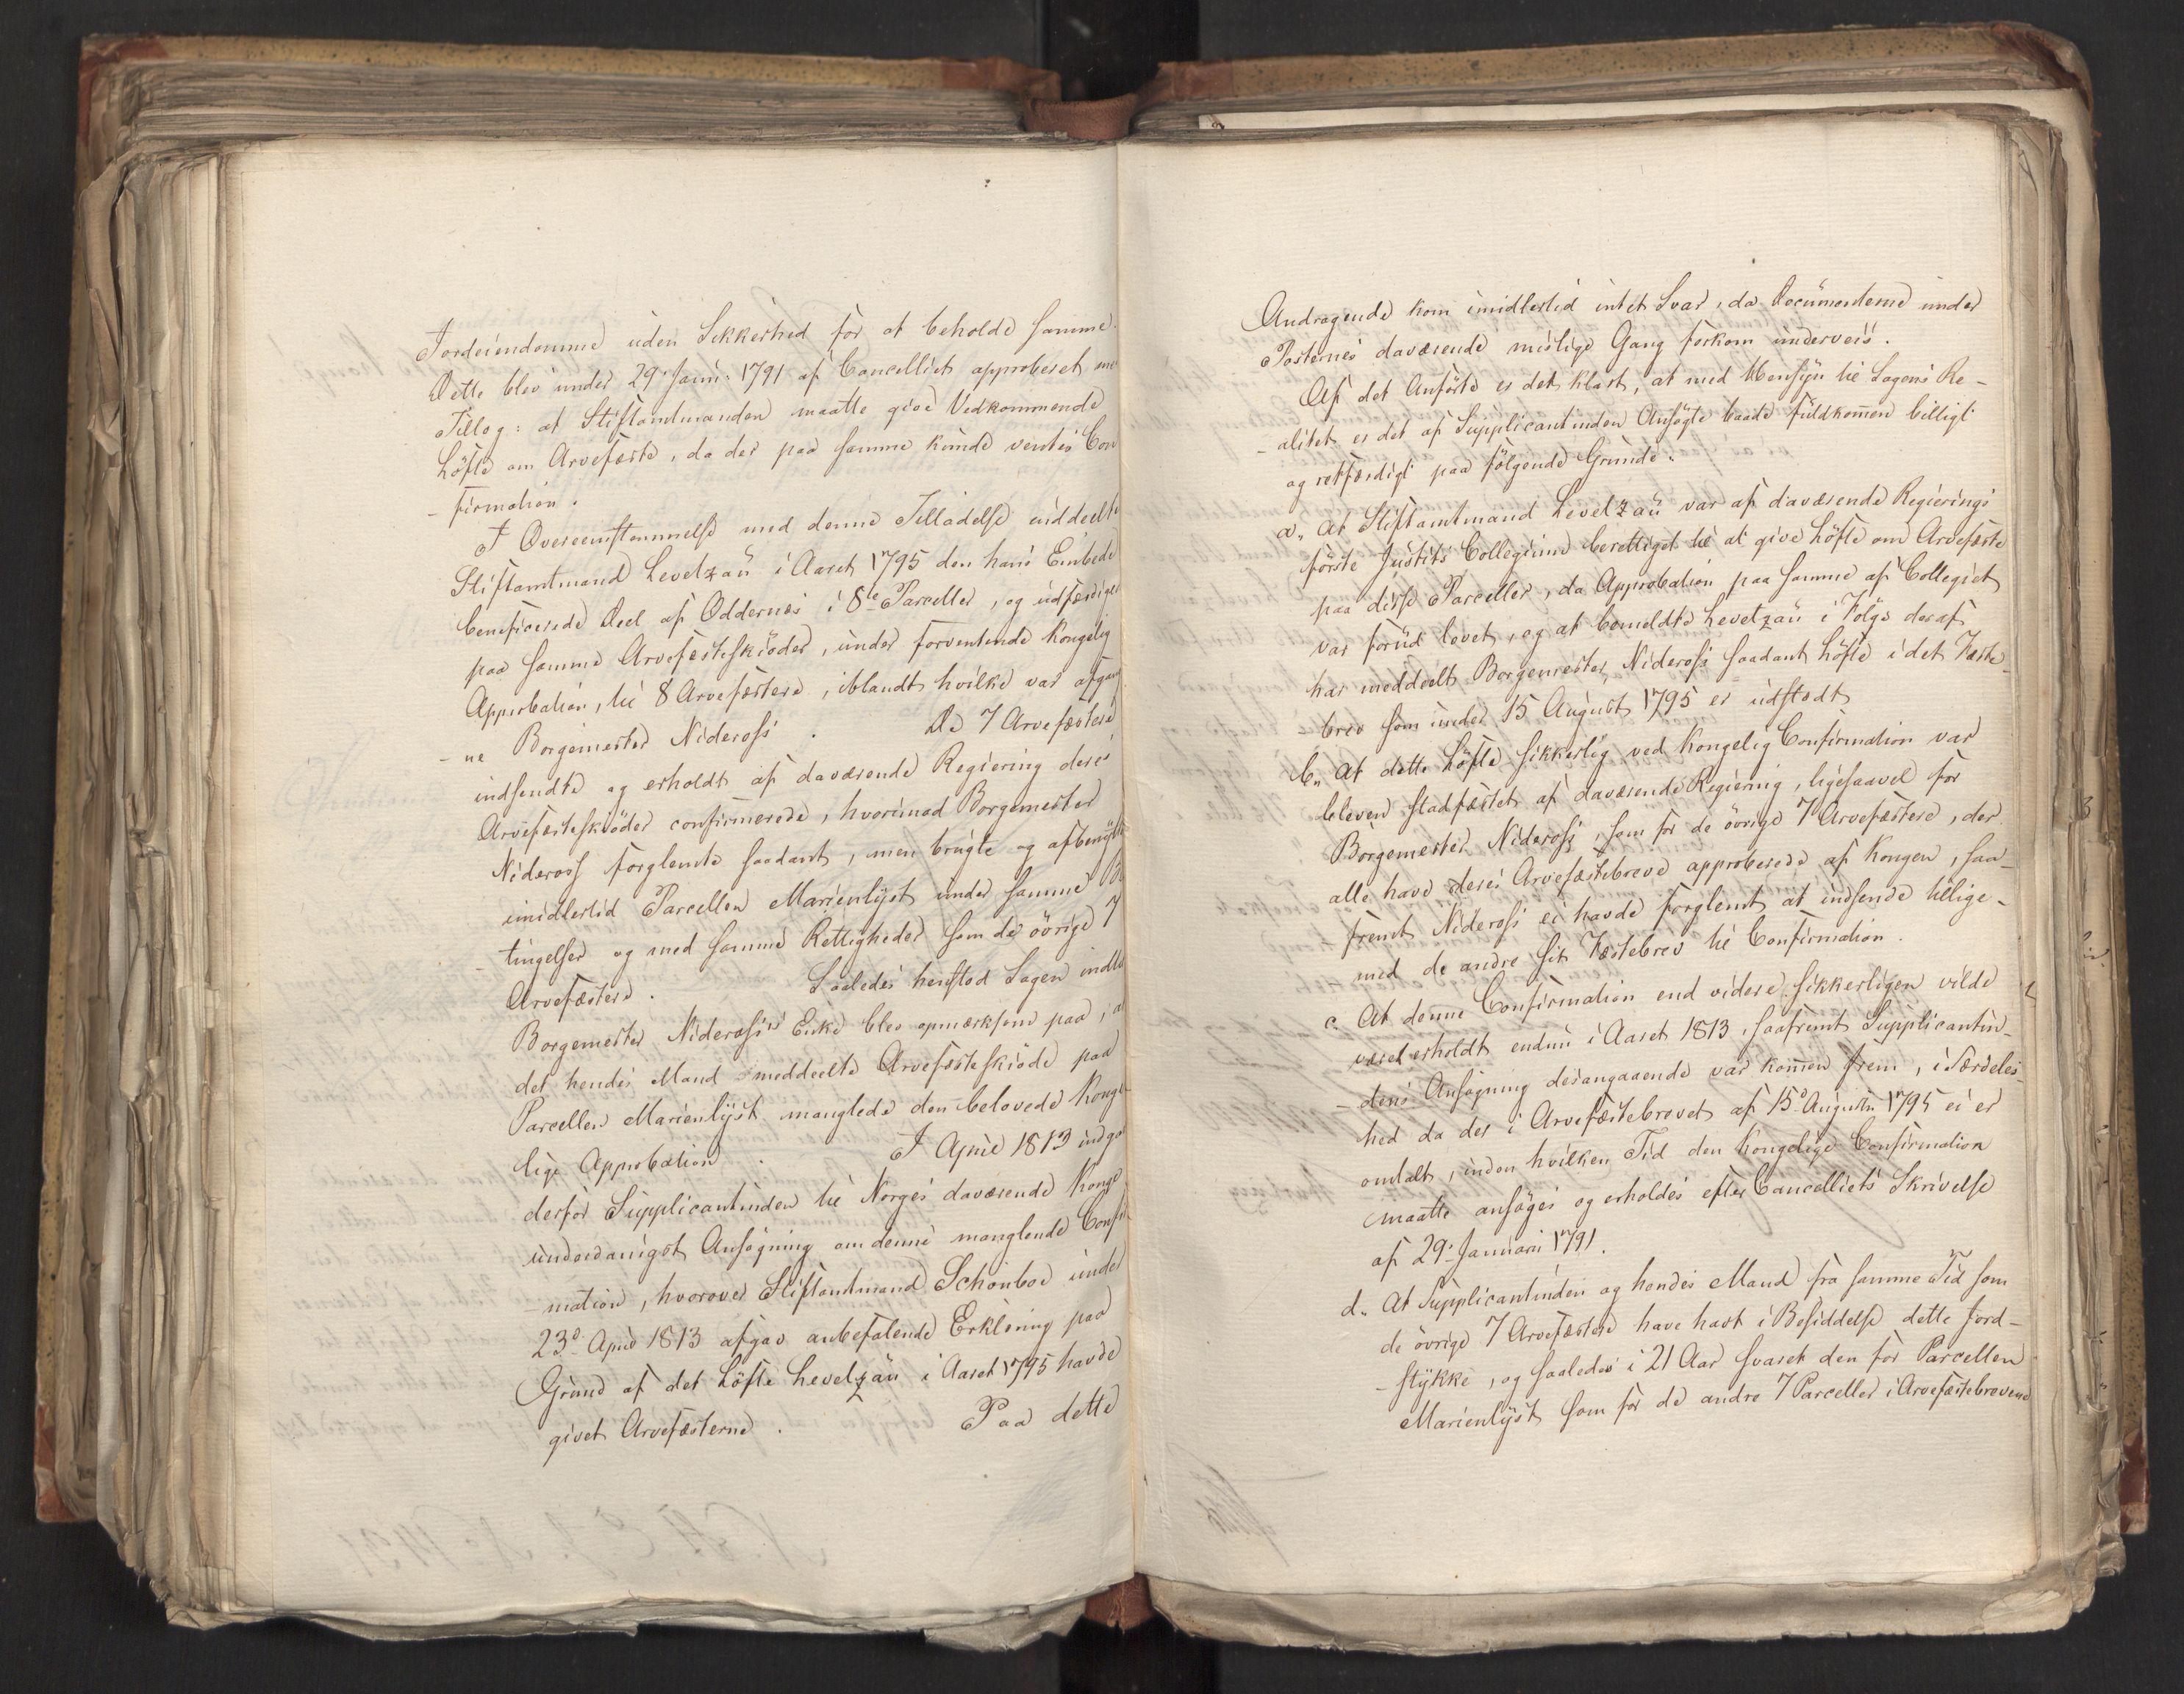 Jordeiendomme uden Sikkerhed for at beholde samme.
Dette blev under 29 Janu: 1791 af Cancelliet approberet med
Tillæg: at Stiftamtmanden maatte give Vedkommende
Löfte om Arvefæste, da der paa samme kunde ventes Con
-firmation.
I Overeenstemmelse med denne Tilladelse uddeelte
Stiftamtmand Levetzau i Aaret 1795 den hans Embede
beneficerede Deel af Oddernes i 8te Parceller, og udfærdiget
paa samme Arvefæsteskiöder, under forventende Kongelig
Approbation, til 8 Arvefæstere, iblandt hvilke var afgang
-ne Borgemester Nideross. De 7 Arvefæstere
indsendte og erholdt af daværende Regiering deres
Arvefæsteskiöder confirmerede, hvorimod Borgemester
Nideross forglemte saadant, men brugte og afbenÿtte
imidlertid Parcellen Marienlÿst under samme Be
-tingelser og med samme Rettigheder som de övrige 7
Arvefæstere. Saaledes henstod Sagen indtil
Borgemester Nideross's Enke blev opmærksom paa, at
det hendes Mand meddeelte Arvefæsteskiöde paa
Parcellen Marienlÿst manglede den belovede Konge-
lige Approbation. I April 1813 indgav
derfor Supplicantinden til Norges daværende Konge
underdanigst Ansøgning om denne manglende Confir
-mation, hvorover Stiftamtmand Schonboe under
23d April 1813 afgav anbefalende Erklæring paa
Grund af det Löfte Levetzau i Aaret 1795 havde
givet Arvefæsterne. Paa dette
Andragende kom imidlertid intet Svar, da Documenterne under
Posternes daværende mislige Gang forkom underveis.
Af det Anförte er det klart, at med Hensÿn til Sagens Re-
-alitet er det af Supplicantinden Ansögte baade fuldkom̄en billigt
og retfærdigt paa fölgende Grunde:
a„ At Stiftamtmand Levetzau var af daværende Regierings
förste Justits Collegium berettiget til at give Löfte om Arvefæste
paa disse Parceller, da Approbation paa samme af Collegiet
var forud lovet, og at bemeldte Levetzau i Fölge deraf
har meddeelt Borgemester Nideross saadant Löfte i det Fæste-
brev som under 15 August 1795 er udstedt
b„ At dette Löfte sikkerlig ved Kongelig Confirmation var
bleven stadfæstet af daværende Regiering, ligesaavel for
Borgemester Nideross, som for de övrige 7 Arvefæstere, der
alle have deres Arvefæstebreve approberede af Kongen, saa-
-fremt Nideross ei havde forglemt at indsende tillige-
med de andre sit Fæstebrev til Confirmation.
c. At denne Confirmation end videre sikkerligen vilde
været erholdt endnu i Aaret 1813, saafremt Supplicantin-
-dens Ansøgning desangaaende var kom̄en frem, i Særdeles-
hed da der i Arvefæstebrevet af 15d Augusti 1795 ei er
omtalt, inden hvilken Tid den Kongelige Confirmation
maatte ansøges og erholdes efter Cancelliets Skrivelse
af 29. Januari 1791.
d„ At Supplicantinden og hendes Mand fra samme Tid som
de övrige 7 Arvefæstere have havt i Besiddelse dette Jord-
-stÿkke, og saaledes i 21 Aar svaret den for Parcellen
Marienlÿst som for de andre 7 Parceller i Arvefæstebrevene